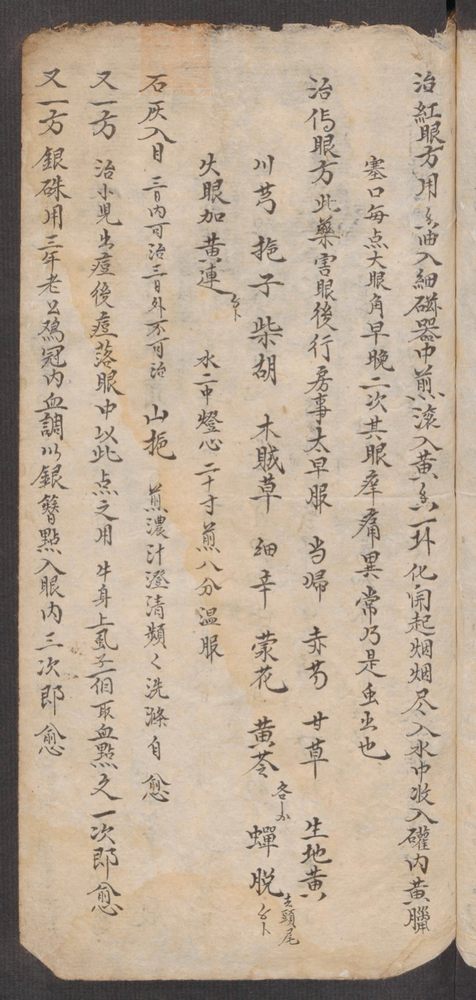 治紅眼方用香油入細磁器中煎滾入黃香一坏化開起烟烟尽入水中收入礶内黃臘
塞口每点大眼角早晚二次其眼痒痛異常乃是虫出也
治傷眼方此藥害眼後行房事太早服 当歸 赤芍 甘草 生地黃
川芎 梔子 柴胡 木賊草 細辛 蒙花 黃芩 各 蟬脱 去頭尾
火眼加黃連 水二中燈心二十寸煎八分溫服
石灰入目 三日内可治三日外不可治 山梔 煎濃汁澄清頻々洗滌自愈
又一方 治小児出痘後痘落眼中以此点之用 牛身上虱子一個取血點之一次即愈
又一方 銀硃用三年老公鷄冠内血調以銀簪點入眼内三次即愈